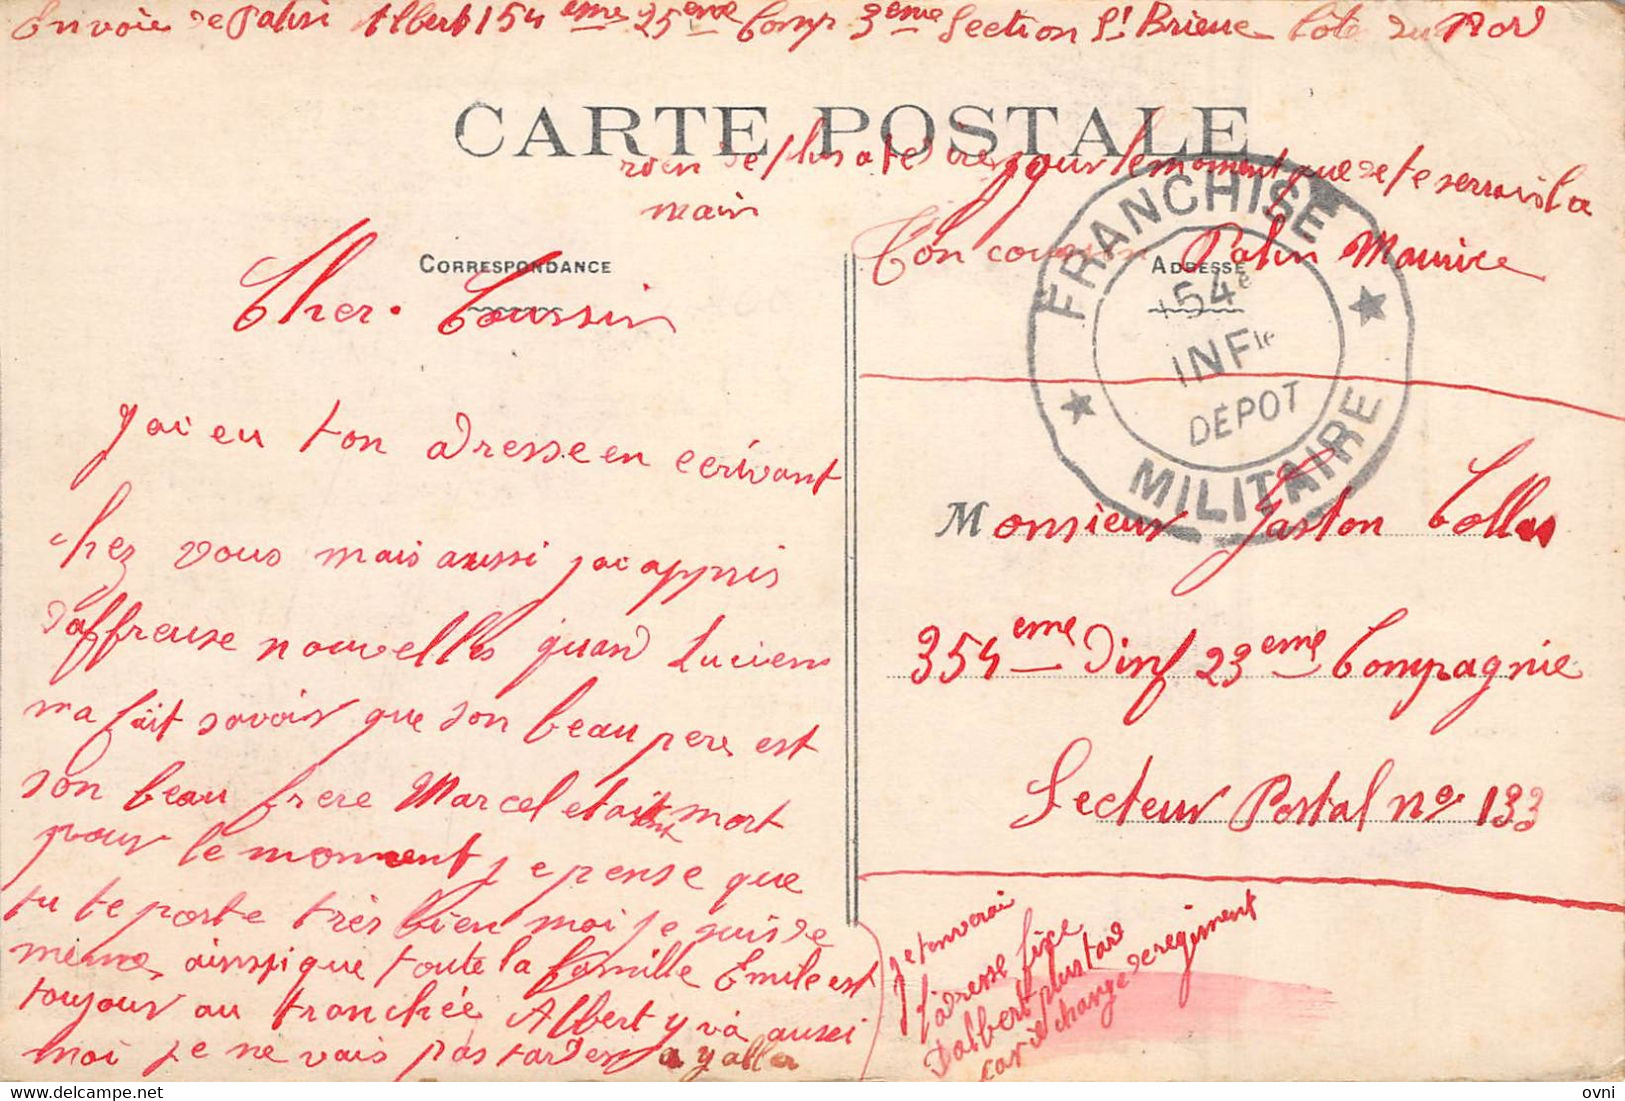 Envoie de Palin Albert 154 eme 25 eme Comp 3 eme Section St Brieuc Cote du Nord
CARTE POSTALE
rien de plus a te dire pour le moment que de te serrais la
main
Ton coussin Palin Maurice
CORRESPONDANCE
ADDESSE
Cher. Coussin
FRANCHISE
MILITAIRE
154e
INFie
DÉPOT
J'ai eu ton adresse en ecrivant
chez vous mais aussi j'ai appris
d'affreuse nouvelles quand Lucien
ma fait savoir que son beau pere est
son beau frere Marcel etait mort
pour le moment je pense que
tu te porte très bien moi je suis de
meme ainspi que toute la famille Emile est
toujour au tranchée Albert y va aussi
moi je ne vais pas tarder a y aller
Monsieur Gaston Collas
354 eme D'inf 23 eme Compagnie
Secteur Postal no 133
Je tenverai
l'adresse fixe
D'albert plus tard
car il change de regiment
ovni